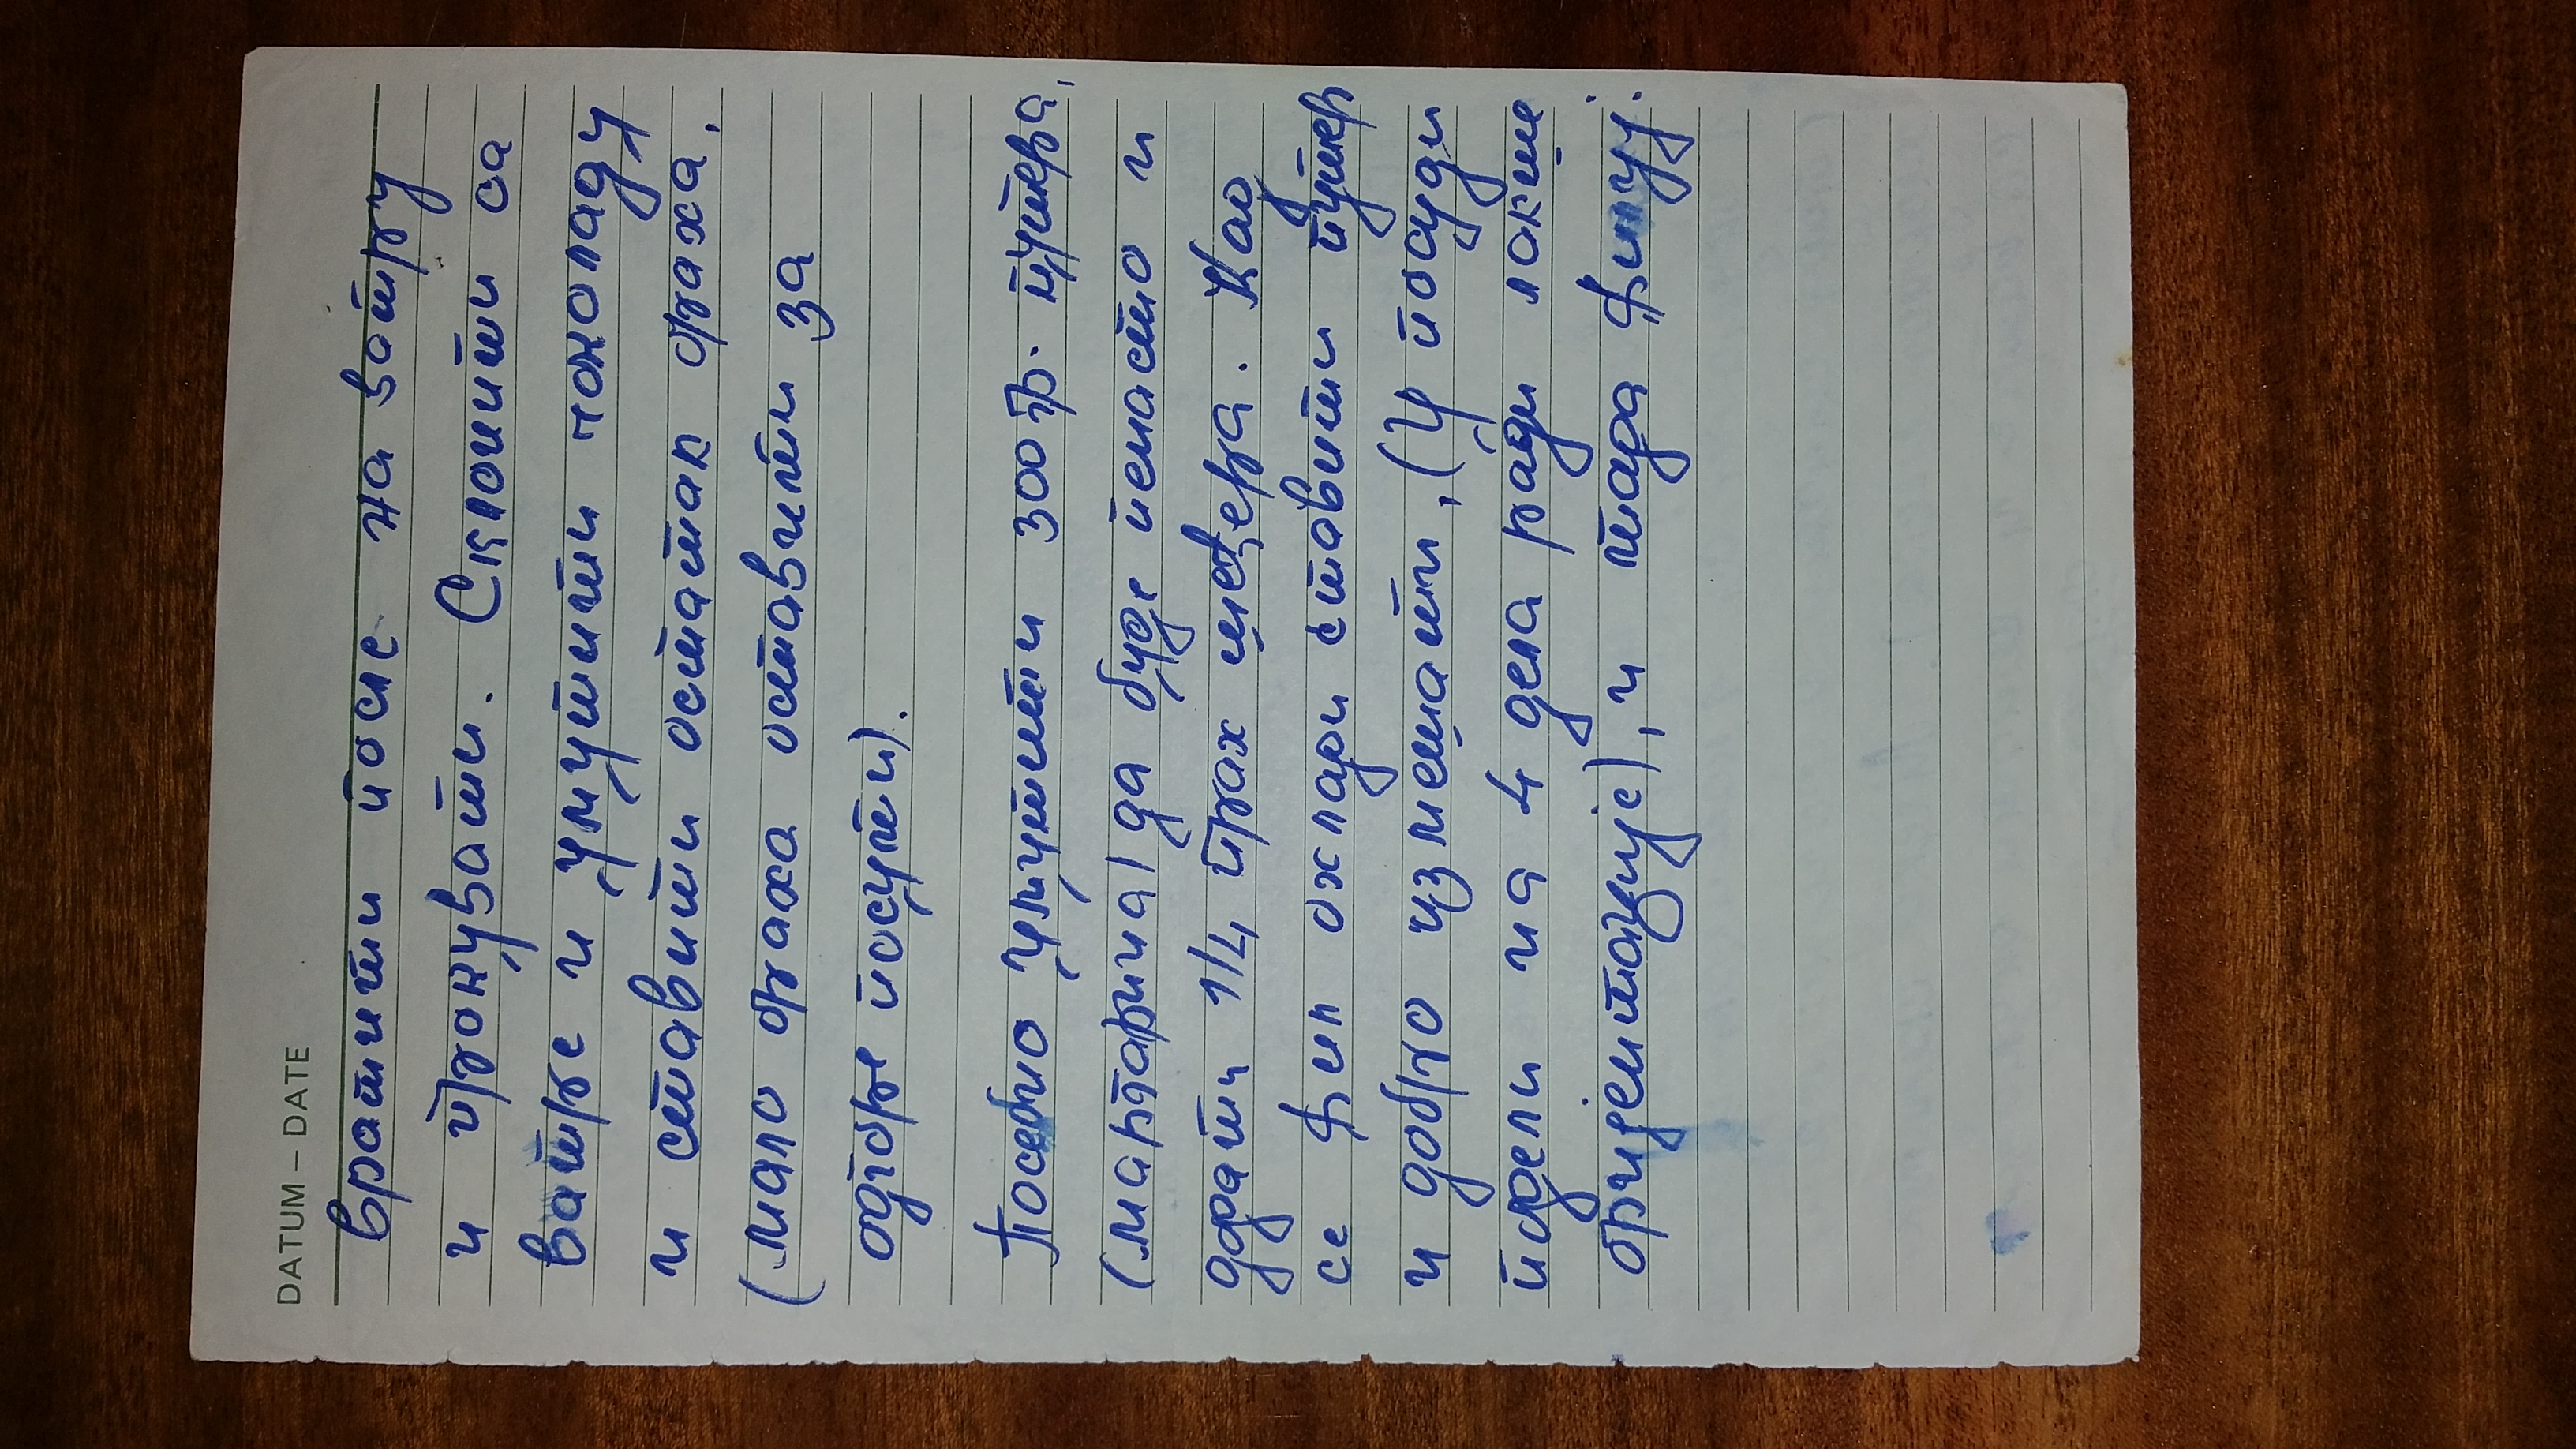 DATUM – DATE
вратити после на ватру
и прокувати. Склонити са
ватре и умутити чоколаду
и ставити остатак ораха.
(мало ораха оставити за
одгоре посути).
Посебно умутити 300 гр. путера,
(маргарина) да буде пенасто и
додати 1/4 прах шећера. Кад
се фил охлади ставити путер
и добро измешати, (У посуди
подели на 4 дела ради лакше
оријентације), и тада филуј.